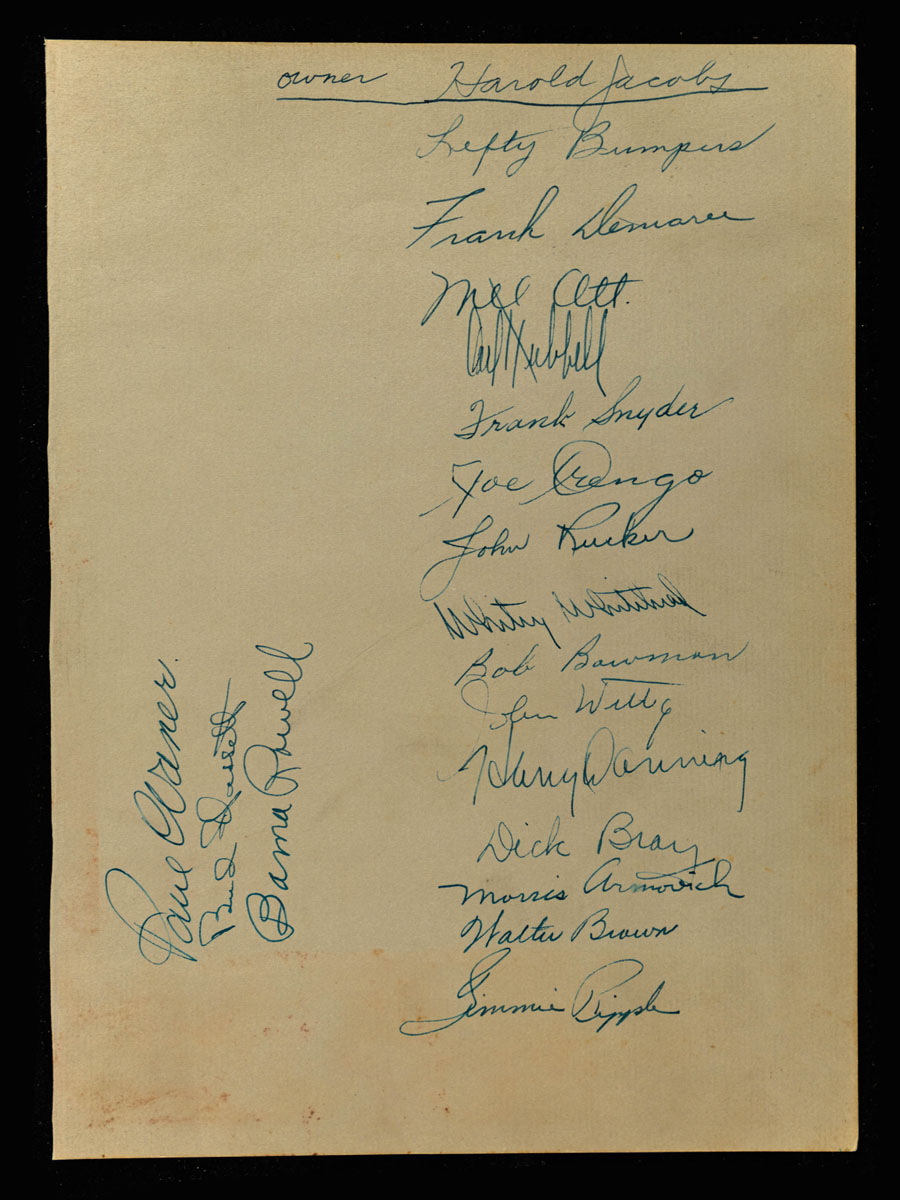 owner Harold Jacobs
Lefty Bumpers
Frank Demaree
Mel Ott.
Carl Hubbell
Frank Snyder
Joe Orengo
John Rucker
Whitey Whitehead
Bob Bowman
John Wittig
Harry Danning
Dick Bray
Morris Arnovich
Walter Brown
Jimmie Ripple
Paul Waner.
Bud
Bama Rowell